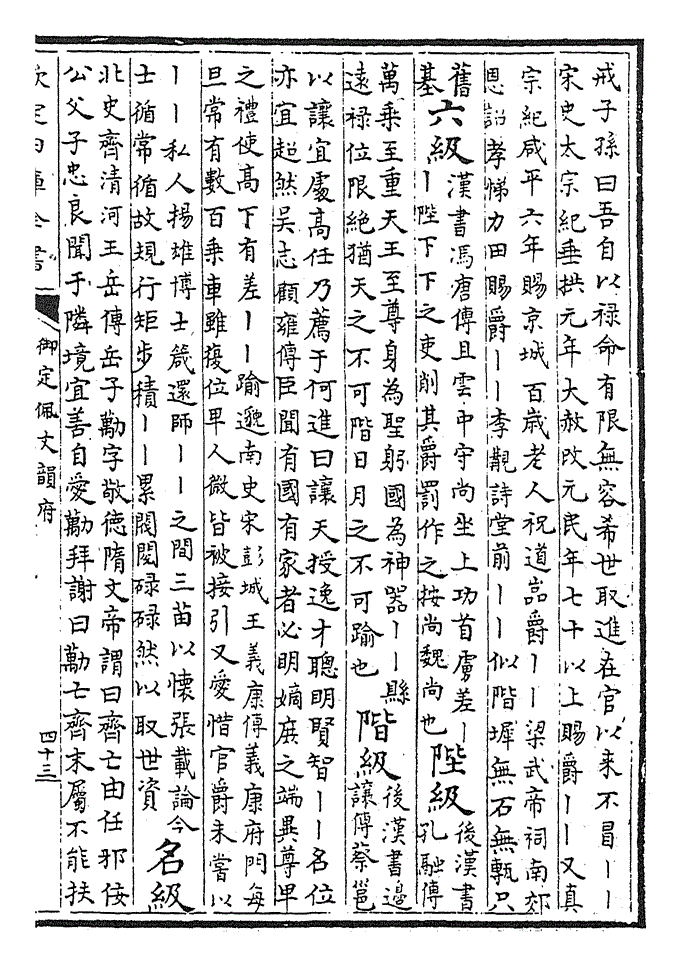 戒子孫曰吾自以祿命有限無容希世取進在官以来不冒丨丨
宋史太宗紀垂拱元年大赦改元民年七十以上賜爵丨丨又真
宗紀咸平六年賜京城百歲老人祝道嵓爵丨丨梁武帝祠南郊
恩詔孝悌力田賜爵丨丨李觀詩堂前丨丨似階墀無石無甎只
舊
基
六級
漢書馮唐傳且雲中守尚坐上功首虜差丨
丨陛下下之吏削其爵罰作之按尚魏尚也
陛級
後漢書
孔融傳
萬乘至重天王至尊身為聖躬國為神器丨丨縣
遠祿位限絶猶天之不可階日月之不可踰也
階級
後漢書邊
讓傳蔡邕
以讓宜處髙任乃薦于何進曰讓天授逸才聰明賢智丨丨名位
亦宜超然吴志顧雍傳臣聞有國有家者必明嫡庶之端異尊卑
之禮使髙下有差丨丨踰邈南史宋彭城王義康傳義康府門每
旦常有數百乘車雖復位卑人微皆被接引又愛惜官爵未嘗以
丨丨私人揚雄博士箴還師丨丨之間三苗以懷張載論今
士循常循故規行矩步積丨丨累閥閲碌碌然以取世資
名級
北史齊清河王岳傳岳子勱字敬德隋文帝謂曰齊亡由任邪佞
公父子忠良聞于隣境宜善自愛勱拜謝曰勱亡齊末屬不能扶
欽定四庫全書
御定佩文韻府
四十三